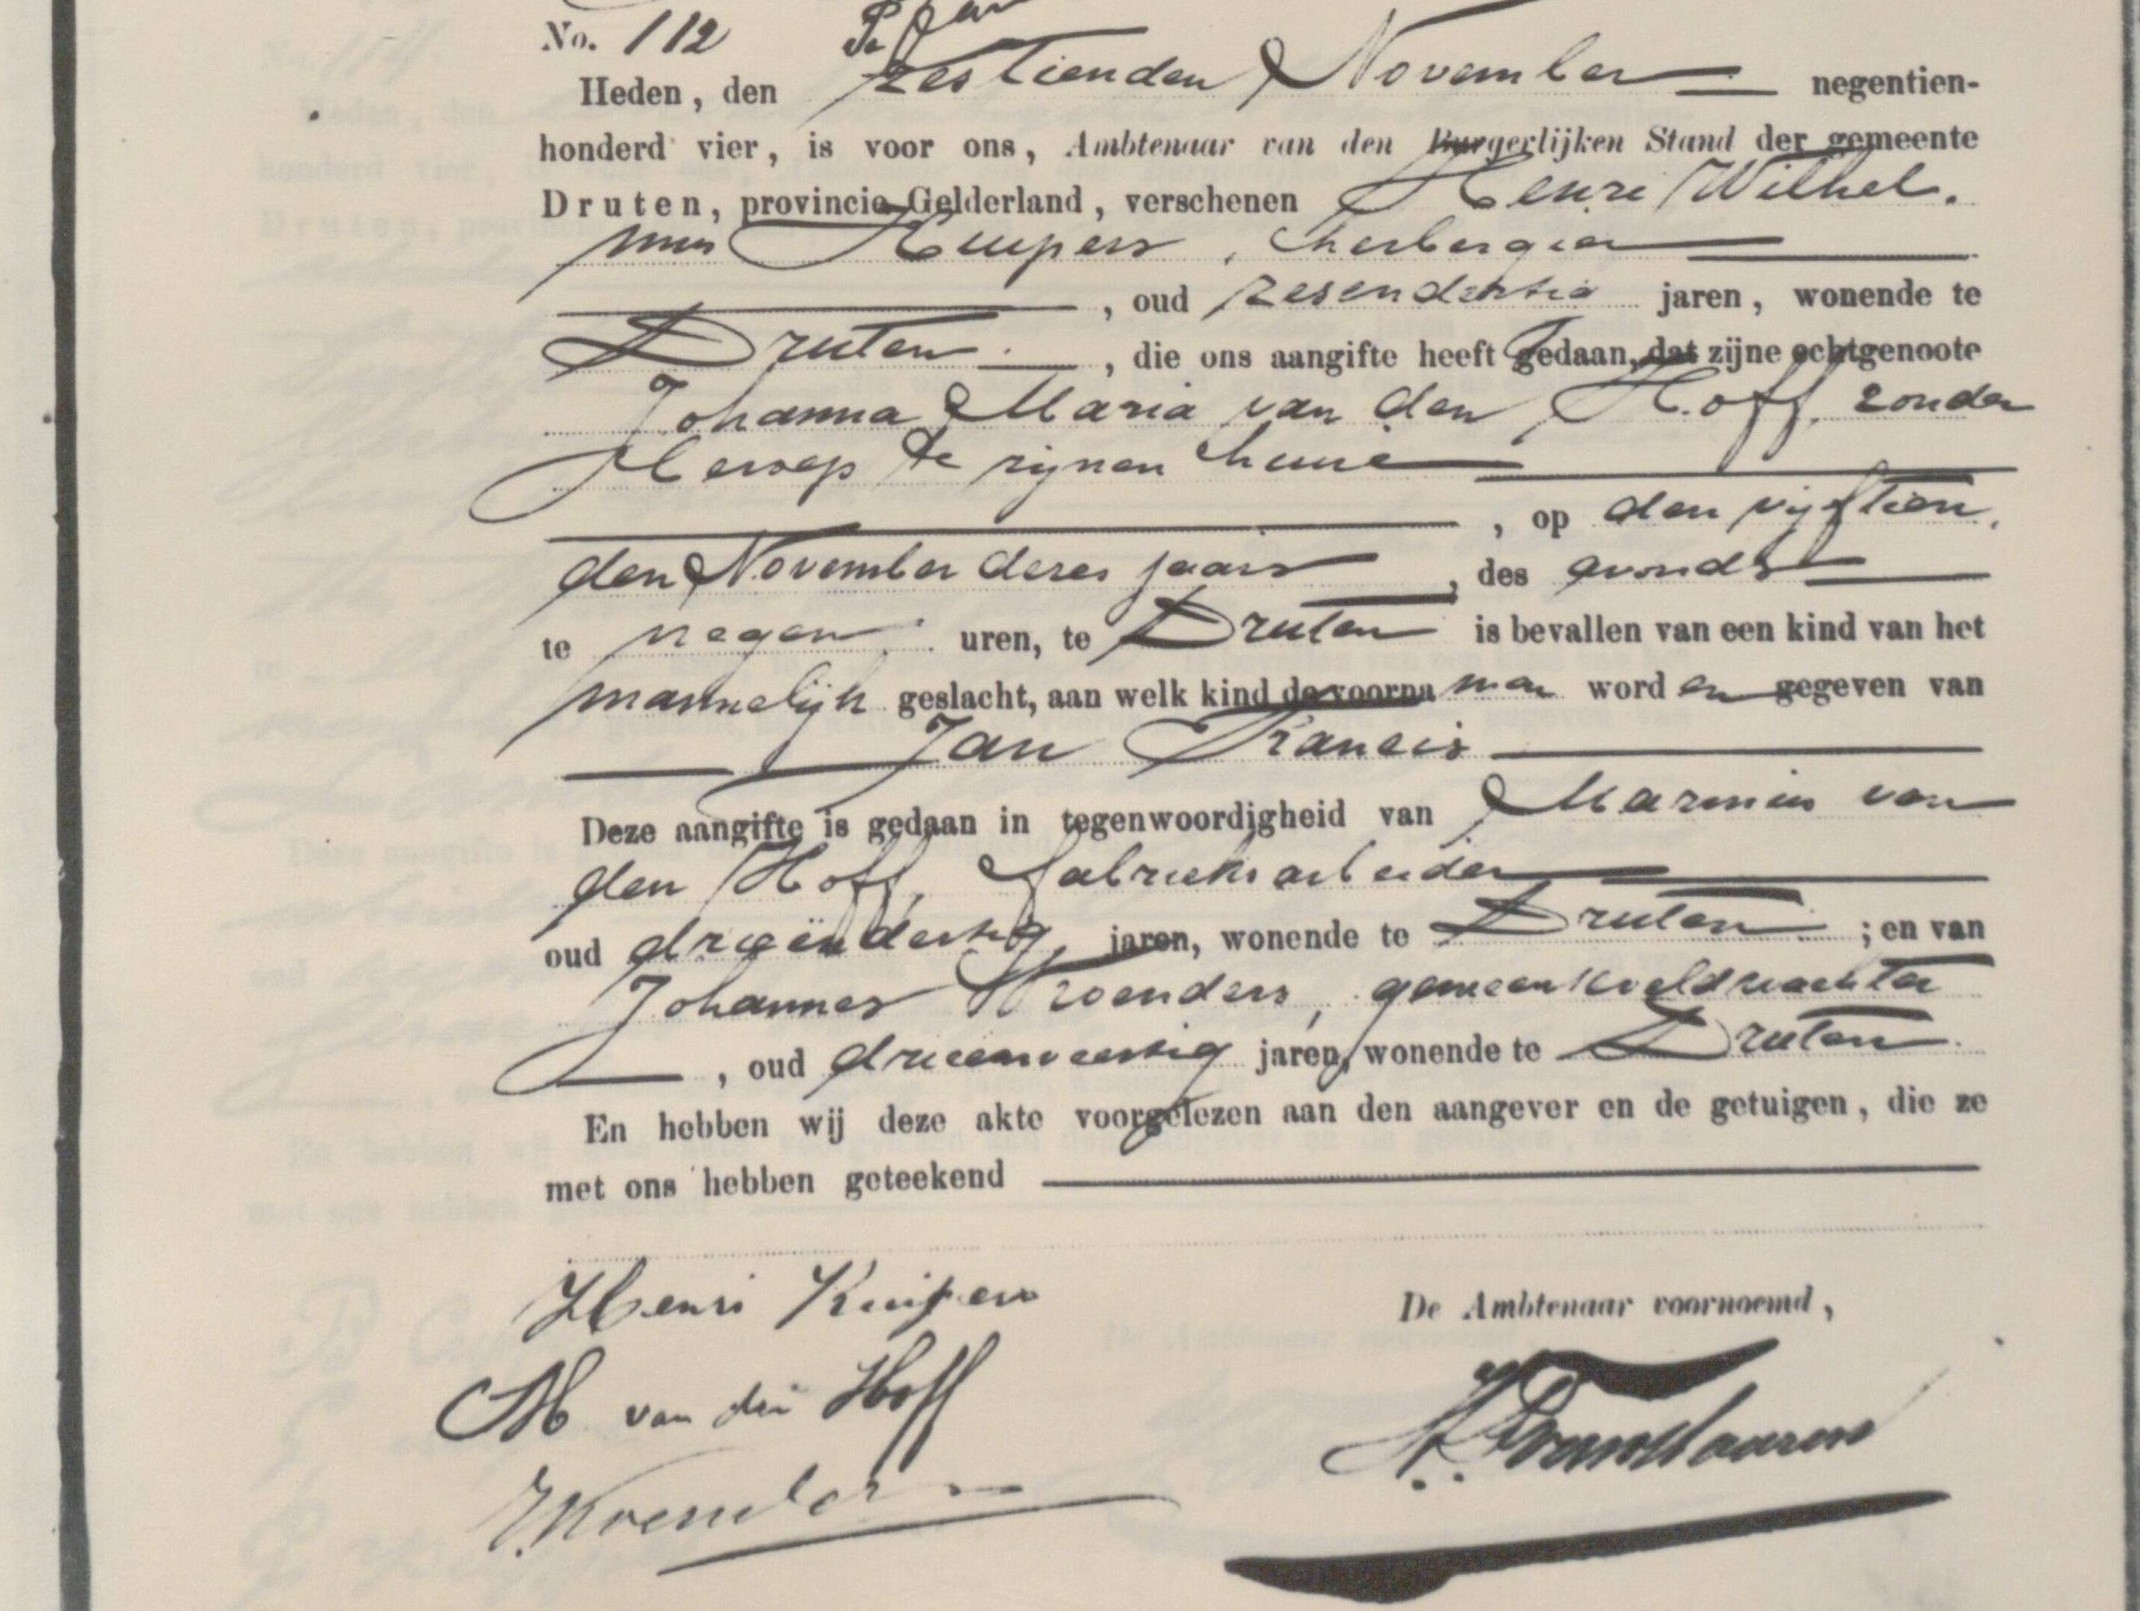 No. 112
Heden, den zestienden November negentien-
honderd vier, is voor ons, Ambtenaar van den Burgerlijken Stand der gemeente
Druten, provincie Gelderland, verschenen Henri Wilhel.
mus Kuipers, herbergier
, oud zesendertig jaren, wonende te
Druten, die ons aangifte heeft gedaan, dat zijne echtgenoote
Johanna Maria van den Hoff, zonder
beroep te zijnen huize
, op den vijftien,
den November dezes jaars, des avonds
te negen uren, te Druten is bevallen van een kind van het
mannelijk geslacht, aan welk kind de voornamen worden gegeven van
Jan Francis
Deze aangifte is gedaan in tegenwoordigheid van Marinus van
den Hoff, fabrieksarbeider
oud drieëndertig, jaren, wonende te Druten; en van
Johannes gemeenteveldwachter
, oud drieenveertig jaren, wonende te Druten.
En hebben wij deze akte voorgelezen aan den aangever en de getuigen, die ze
met ons hebben geteekend
Henri Kuipers
De Ambtenaar voornoemd,
M van den Hoff